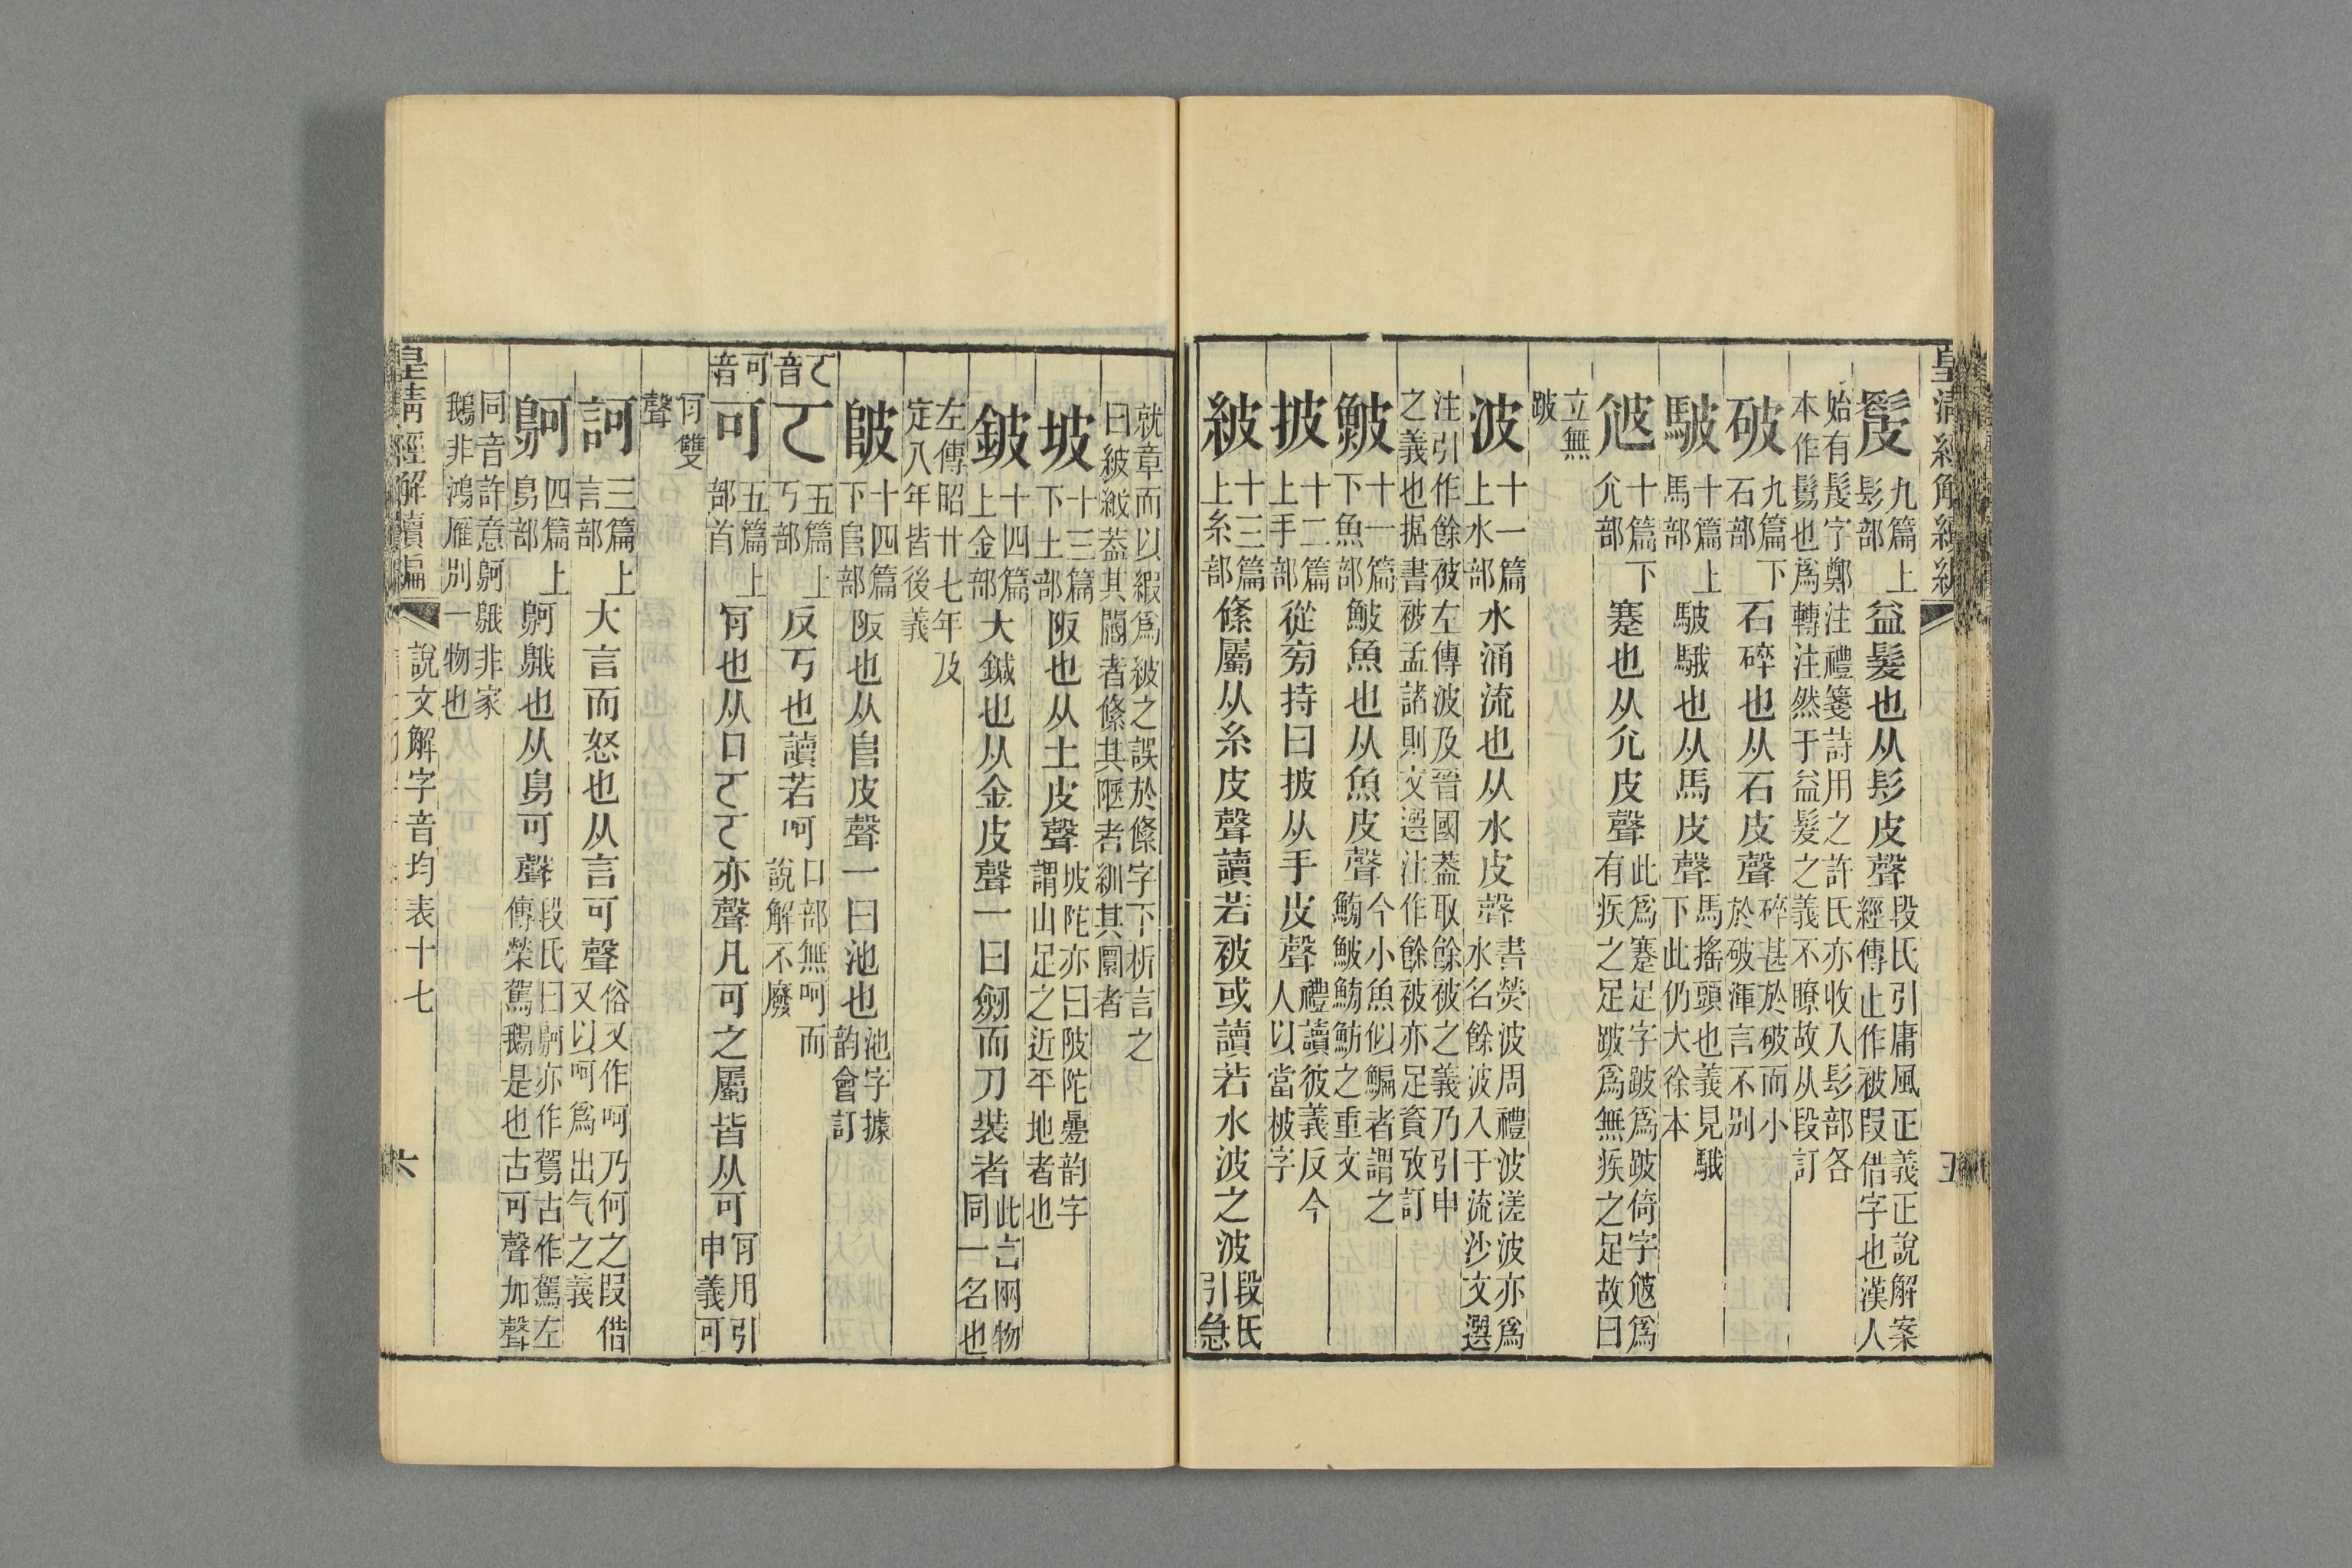 皇清經解續編
髲 九篇上髟部 益髮也从髟皮聲 段氏引庸風正義正說解案經傳止作被叚借字也漢人
始有髲字鄭注禮箋詩用之許氏亦收入髟部各本作鬄也爲轉注然于益髮之義不瞭故从段訂
破 九篇下石部 石碎也从石皮聲 碎甚於破而小於破渾言不别
駊 十篇上馬部 駊騀也从馬皮聲 馬搖頭也義見騀下此仍大徐本
𡯄 十篇下尣部 蹇也从尣皮聲 此爲蹇足字跛爲跛倚字𡯄爲有疾之足跛爲無疾之足故曰
立無跛
波 十一篇上水部 水涌流也从水皮聲 書熒波周禮波溠波亦爲水名餘波入于流沙文選
注引作餘被左傳波及晉國葢取餘被之義乃引申之義也据書被孟諸則文選注作餘被亦足資攷訂
鮍 十一篇下魚部 鮍魚也从魚皮聲 今小魚似鯿者謂之鰟鮍鰟魴之重文
披 十二篇上手部 從㫄持曰披从手皮聲 禮讀彼義反今人以當柀字
紴 十三篇上糸部 絛屬从糸皮聲讀若被或讀若水波之波 段氏引急
五
就章而以緞爲紴之誤於絛字下析言之曰紴紱葢其闊者絛其陿者紃其圜者
坡 十三篇下土部 阪也从土皮聲 坡陀亦曰陂陀㬪韵字謂山足之近平地者也
鈹 十四篇上金部 大鍼也从金皮聲一曰劒而刀裝者 此言兩物同一名也
左傳昭廿七年及定八年皆後義
陂 十四篇下𨸏部 阪也从𨸏皮聲一曰池也 池字據韵會訂
𠀀音 𠀀 五篇上丂部 反丂也讀若呵 口部無呵而說解不廢
可音 可 五篇上部首 肎也从口𠀀𠀀亦聲凡可之屬皆从可 肎用引申義可
肎雙聲
訶 三篇上言部 大言而怒也从言可聲 俗又作呵乃何之叚借又以呵爲出气之義
鴚 四篇上鳥部 鴚䳘也从鳥可聲 段氏曰鴚亦作鴐古作駕左傳榮駕鵝是也古可聲加聲
同音許意鴚䳘非家鵝非鴻雁别一物也
皇清經解續編 說文解字音均表十七 六